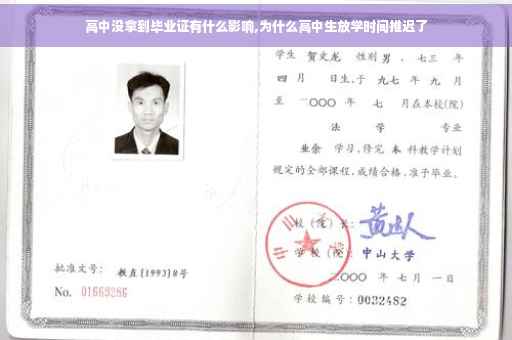 高中没拿到毕业证有什么影响,为什么高中生放学时间推迟了
学生 贺文龙 性别 男 、七三 年
四 月 日生,于 九七 年 九 月
至 二○○○ 年 七 月在本校(院)
法 学 专业
业余 学习,修完 本 科教学计划
规定的全部课程,成绩合格,准予毕业。
校(院)长:
学校(院): 中山大学
二○○○ 年 七 月 一 日
批准文号: 教直[1993]8号
No. 01663286
学校编号: 0032482